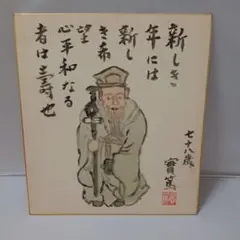 新しき
年には
新し
き希
望
心平和なる
者は壽也
七十八歳
實篤